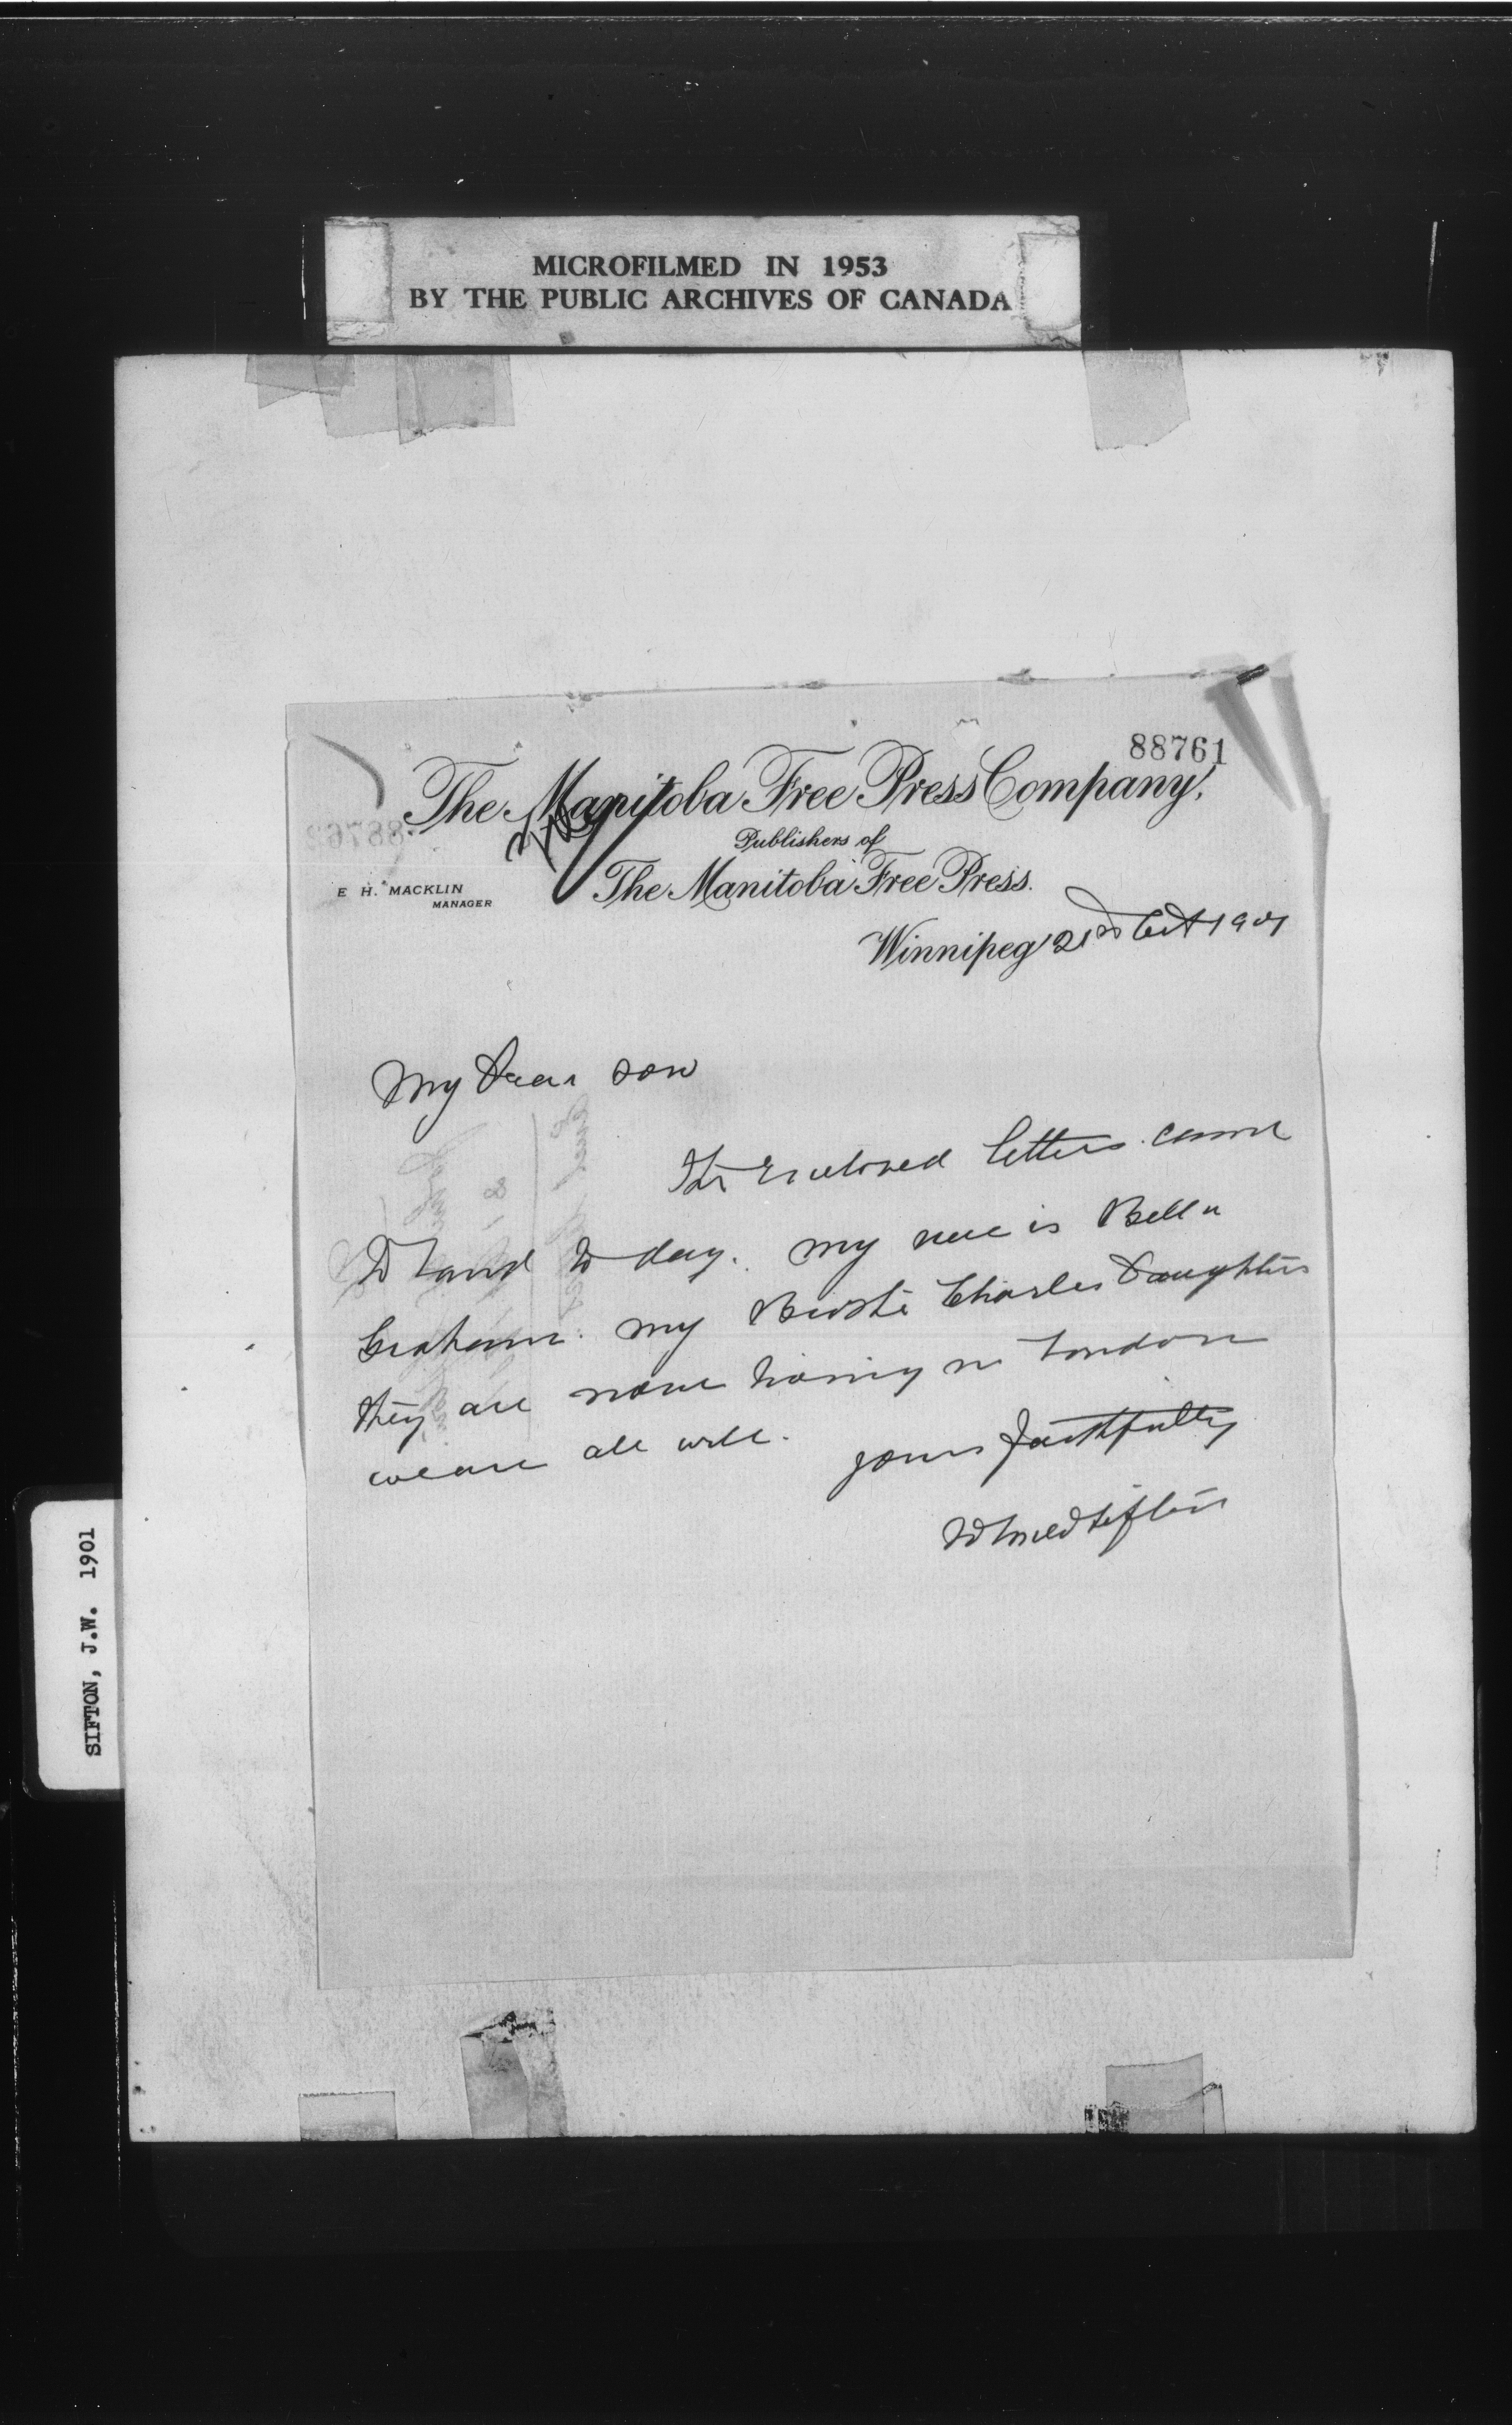 MICROFILMED IN 1953
BY THE PUBLIC ARCHIVES OF CANADA
88761
The Manitoba Free Press Company,
Publishers of
The Manitoba Free Press.
E. H. MACKLIN
MANAGER
Winnipeg 21 Oct 1901
My Dear son
The Enclosed letters came
to hand to day. my niece is Bella
Graham. my Brothe Charles Daughters
they are now living in London
we are all well.
yours faithfully
J W Sifton
SIFTON, J.W. 1901